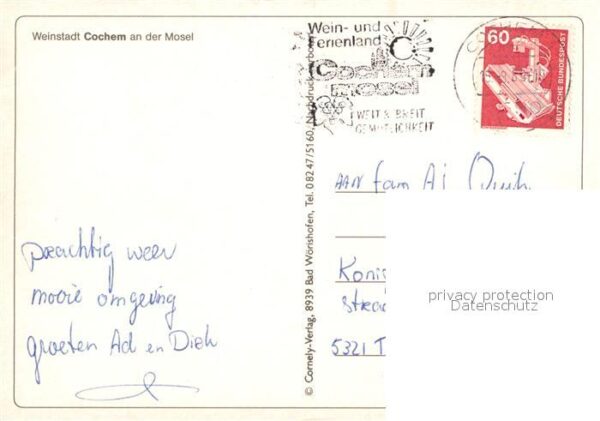 Weinstadt Cochem an der Mosel
Wein- und
Ferienland
Cochem
mosel
WEIT & BREIT
GEMÜTLICHKEIT
60
DEUTSCHE BUNDESPOST
prachtig weer
mooie omgeving
groeten Ad en Dieh
© Cornely-Verlag, 8939 Bad Wörishofen, Tel. 0 82 47/51 60, Nachdruck verboten
AAN fam Ai
Konis
straa
5321 T
privacy protection
Datenschutz